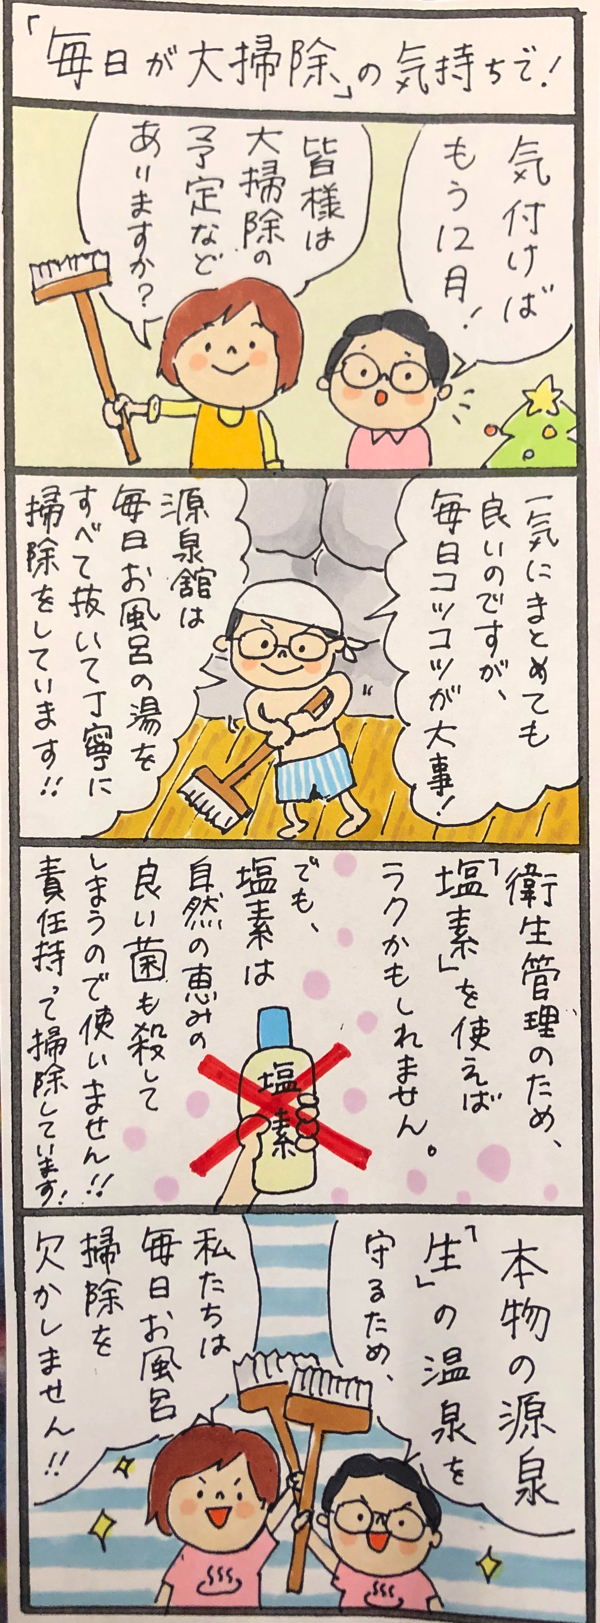 「毎日が大掃除」の気持ちで!
気付けば
もう12月!
皆様は
大掃除の
予定など
ありますか?
一気にまとめても
良いのですが、
毎日コツコツが大事!
源泉舘は
毎日お風呂の湯を
すべて抜いて丁寧に
掃除をしています!!
衛生管理のため、
「塩素」を使えば
ラクかもしれません。
でも、
塩素は
自然の恵みの
良い菌も殺して
しまうので使いません!!
責任持って掃除しています!
塩素
本物の源泉
「生」の温泉を
守るため、
私たちは
毎日お風呂
掃除を
欠かしません!!